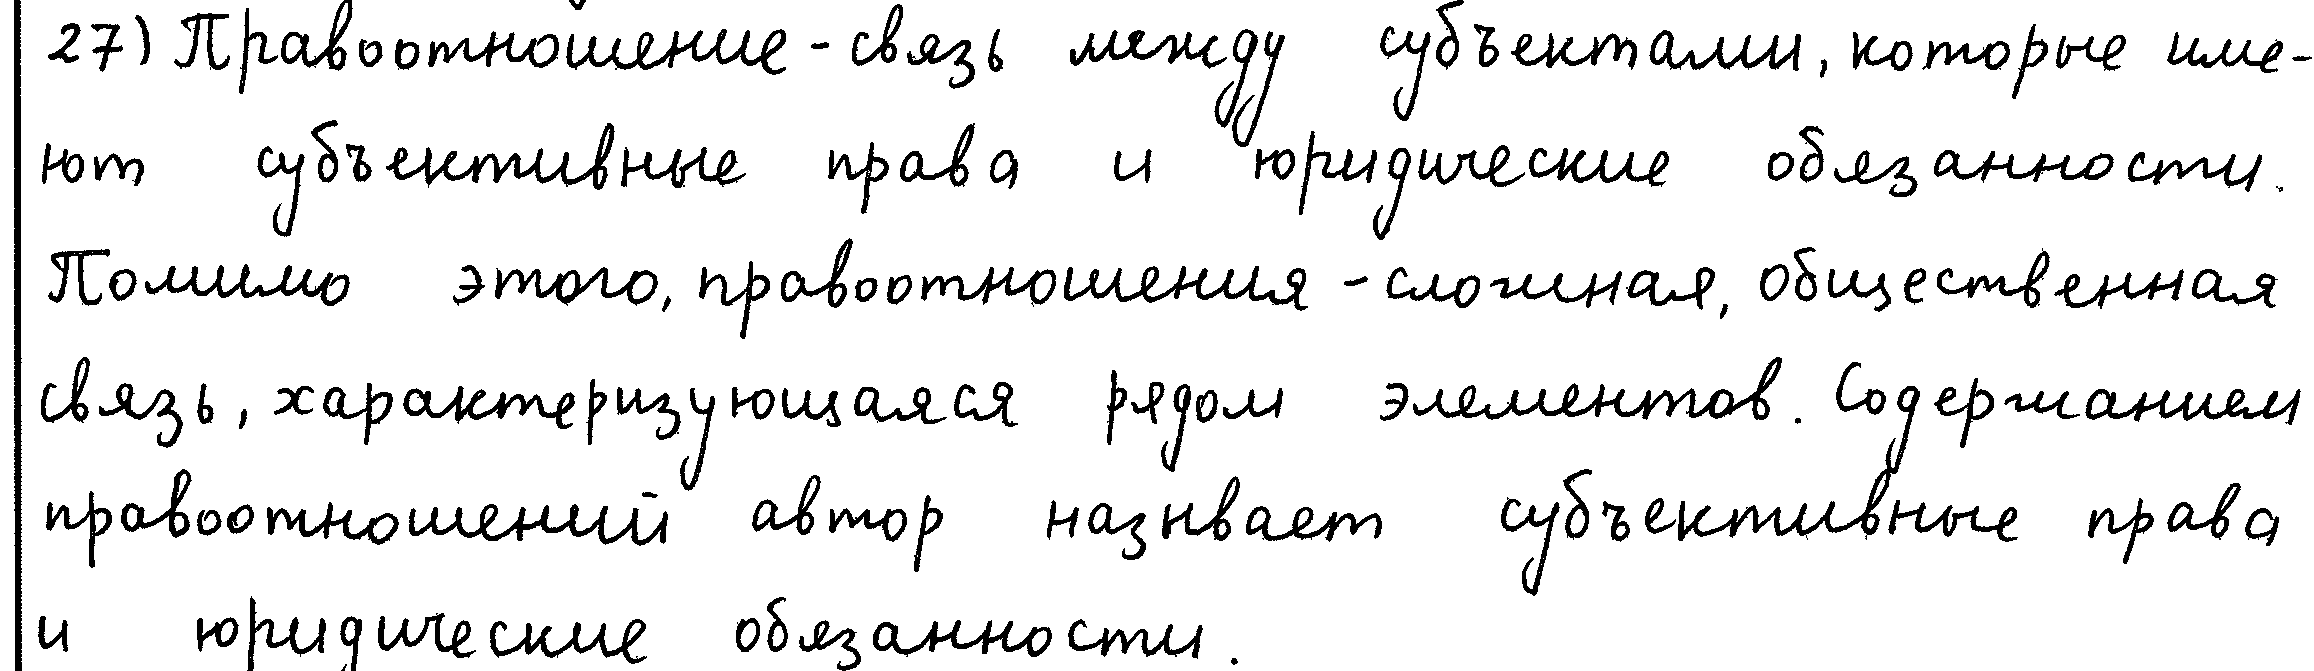 27) Правоотношение - связь между субъектами, которые име-
ют субъективные права и юридические обязанности.
Помимо этого, правоотношения - сложная, общественная
связь, характеризующаяся рядом элементов. Содержанием
правоотношений автор назнвает субъективные права
и юридические обязанности.